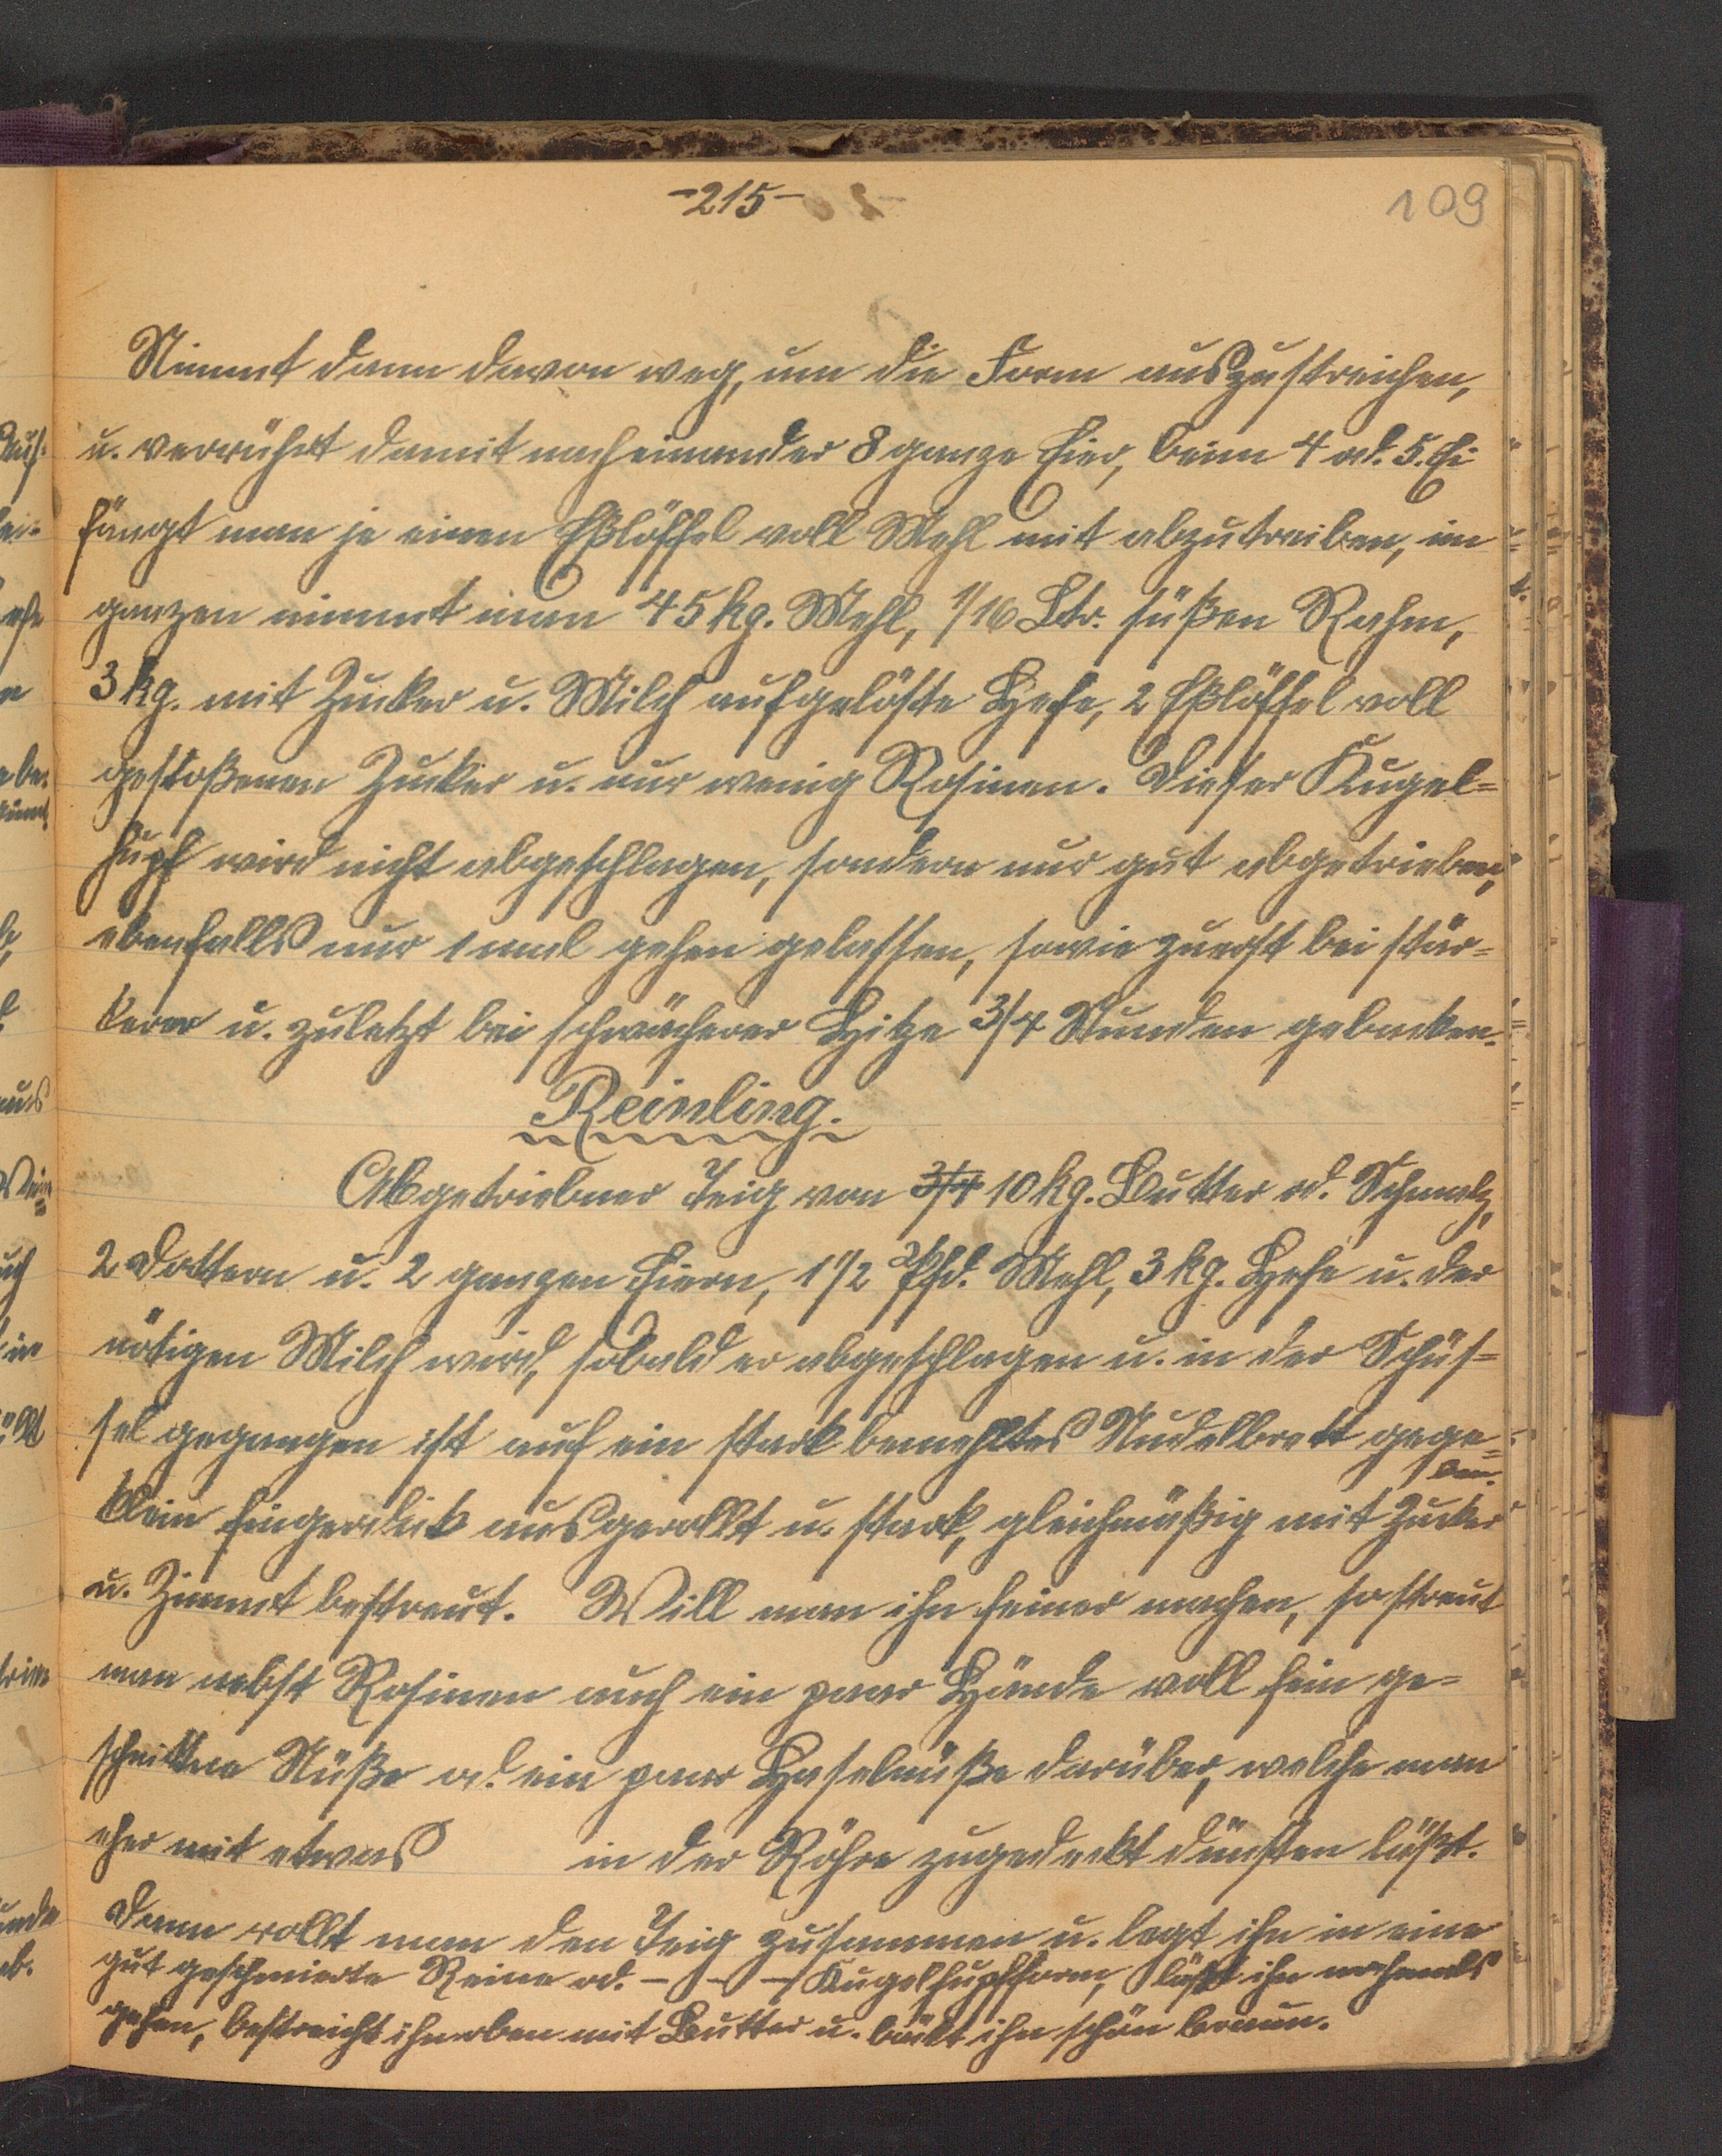 -215-
109
Nimmt dann davon weg, um die Form auszustreichen,
u. verrührt damit nacheinander 8 ganze Eier, beim 4 od. 5. Ei
fängt man je einen Eßlöffel voll Mehl mit abzutreiben, im
ganzen nimmt man 45 kg. Mehl, 1/16 Ltr. süßen Rahm,
3 kg. mit Zucker u. Milch aufgelöste Hefe, 2 Eßlöffel voll
gestoßenen Zucker u. nur wenig Rosinen. Dieser Kugel=
hupf wird nicht abgeschlagen, sondern nur gut abgetrieben,
ebenfalls nur 1 mal gehen gelassen, sowie zuerst bei stär=
kerer u. zuletzt bei schwächerer Hitze 3/4 Stunden gebacken.
Reinling.
Abgetriebner Teig von 3/4 10 kg. Butter od. Schmalz,
2 Dottern u. 2 ganzen Eiern, 1 1/2 Pfd. Mehl, 3 kg. Hefe u. der
nötigen Milch wird, sobald er abgeschlagen u. in der Schüs=
sel gegangen ist auf ein stark bemehltes Nudelbrett gege=
ben.
klein fingerdick ausgerollt u. stark, gleichmäßig mit Zucker
u. Zimmt bestreut. Will man ihn feiner machen, so streut
man nebst Rosinen auch ein paar Hände voll fein ge=
schnittne Nüße od. ein paar Haselnüße darüber, welche man
eher mit etwas in der Röhre zugedeckt dünsten läßt.
Dann rollt man den Teig zusammen u. legt ihn in eine
gut geschmierte Reine od. - - - Kugelhupfform, läßt ihn nochmals
gehen, bestreicht ihn oben mit Butter u. bäckt ihn schön braun.